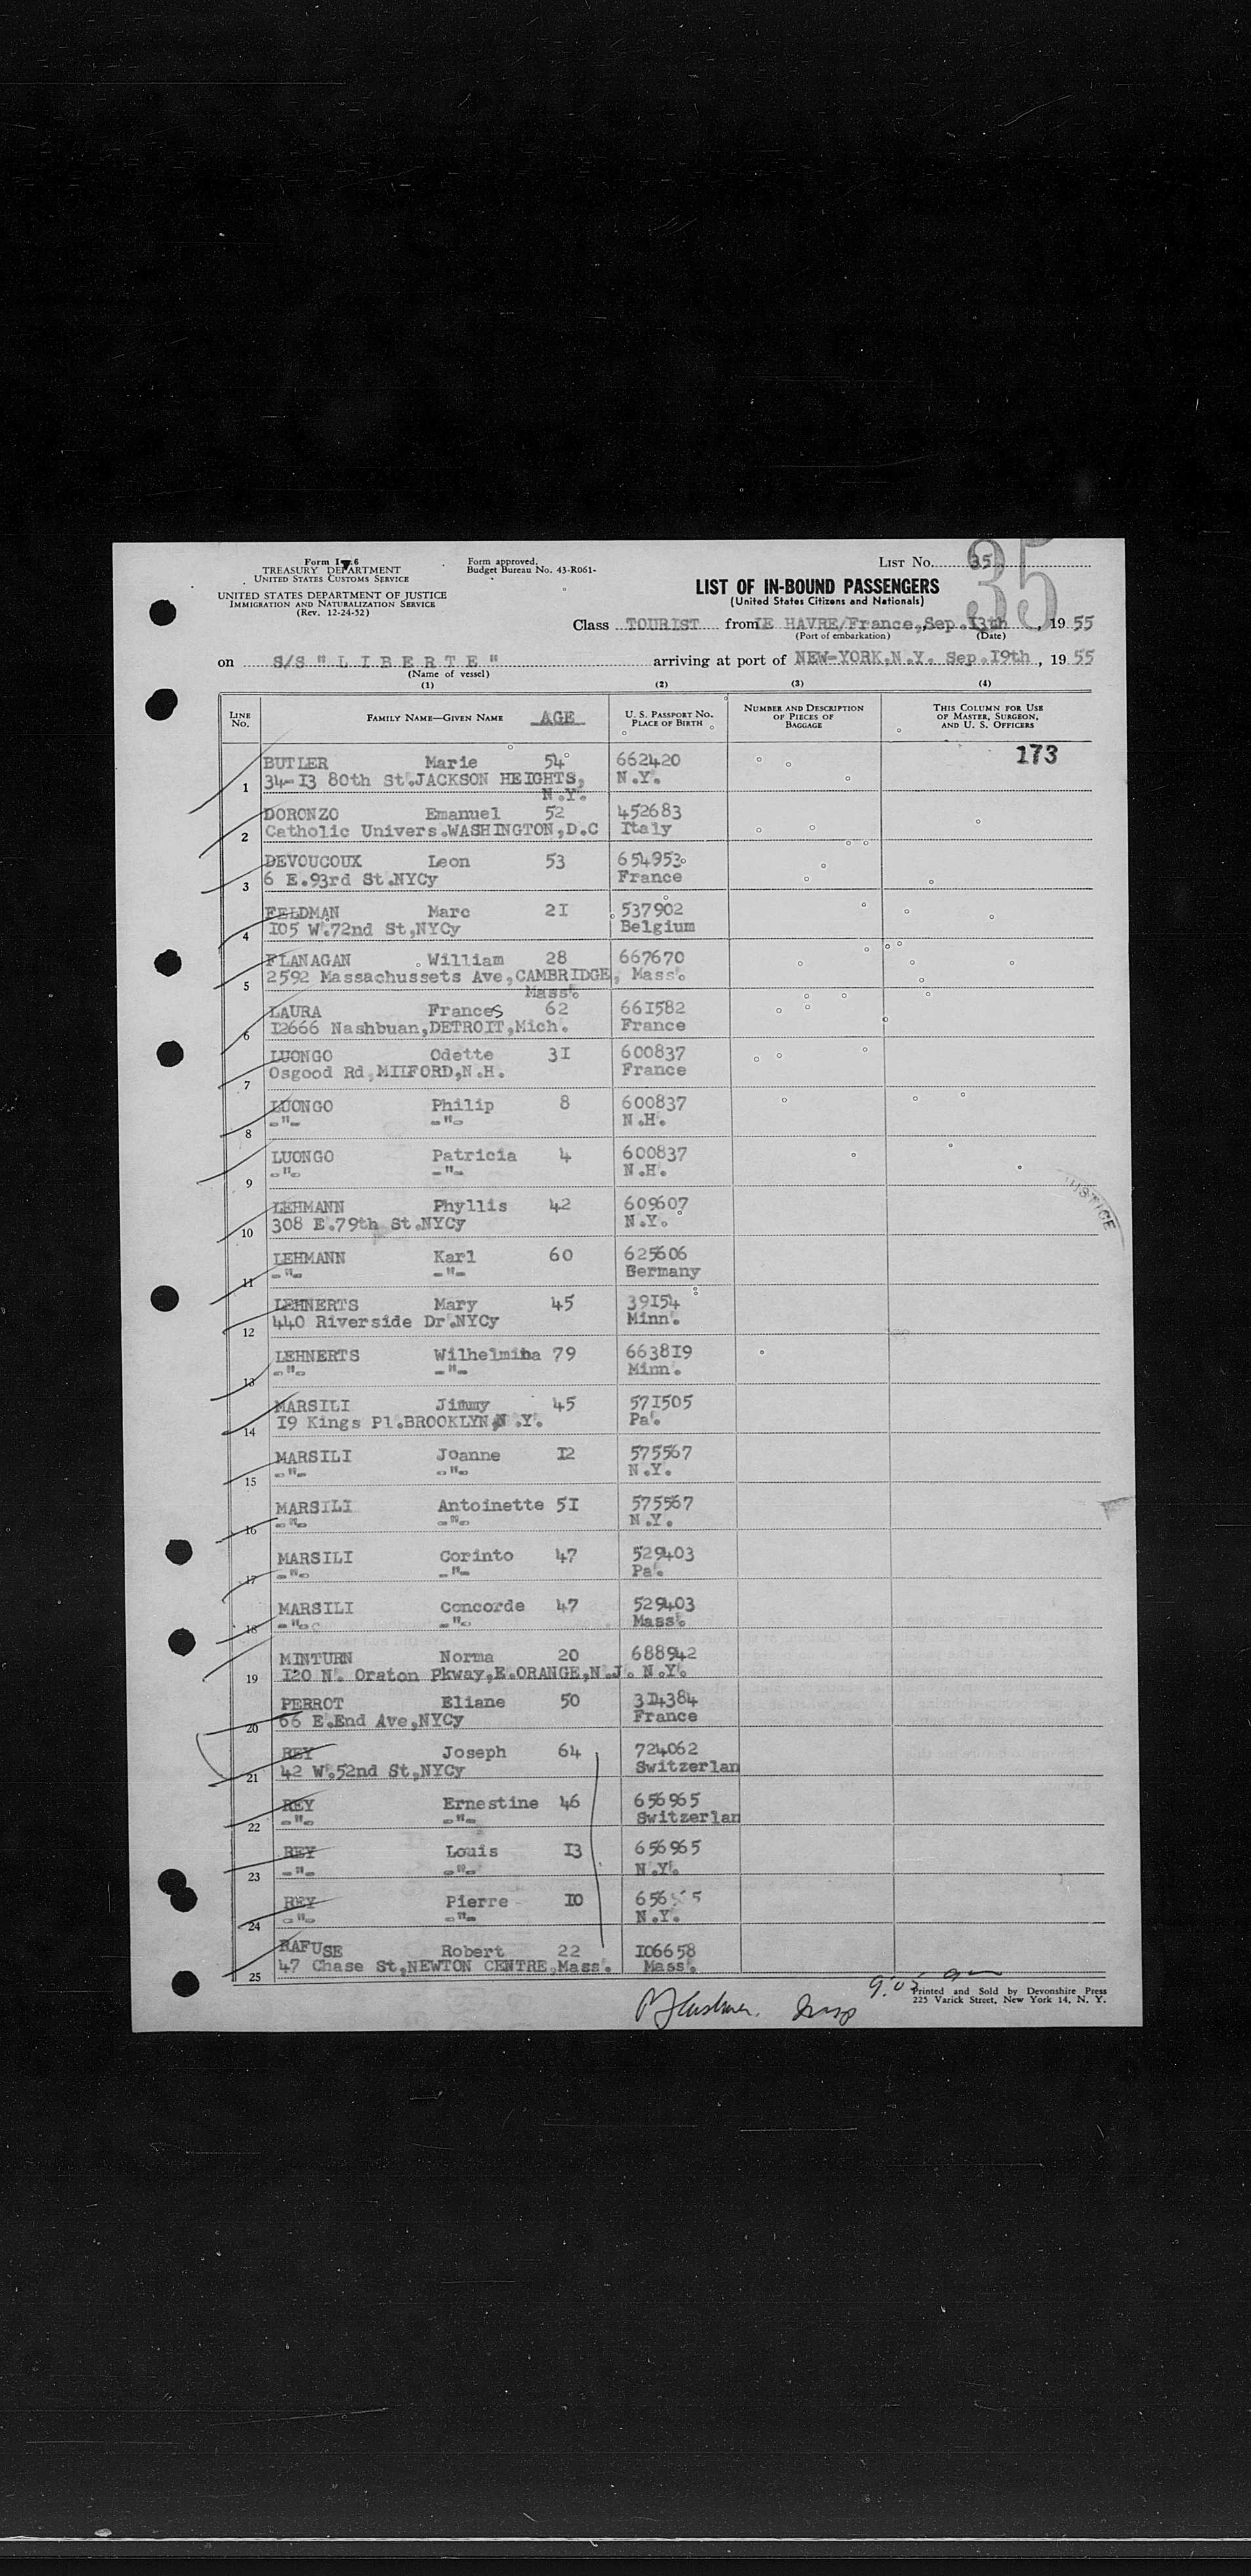 Form I-6
TREASURY DEPARTMENT
UNITED STATES CUSTOMS SERVICE
UNITED STATES DEPARTMENT OF JUSTICE
IMMIGRATION AND NATURALIZATION SERVICE
(Rev. 12-24-52)
Form approved.
Budget Bureau No. 43-R061-
LIST No. 35
35
LIST OF IN-BOUND PASSENGERS
(United States Citizens and Nationals)
Class TOURIST from LE HAVRE/France, Sep.13th, 1955
(Port of embarkation) (Date)
on S/S "LIBERTE" arriving at port of NEW-YORK.N.Y. Sep.19th, 1955
(Name of vessel)
(1) (2) (3) (4)
LINE No. FAMILY NAME—GIVEN NAME AGE U. S. PASSPORT No. PLACE OF BIRTH NUMBER AND DESCRIPTION OF PIECES OF BAGGAGE THIS COLUMN FOR USE OF MASTER, SURGEON, AND U. S. OFFICERS
173
1 BUTLER Marie 54 662420
34-I3 80th St.JACKSON HEIGHTS, N.Y. N.Y.
2 DORONZO Emanuel 52 452683
Catholic Univers.WASHINGTON,D.C Italy
3 DEVOUCOUX Leon 53 654953
6 E.93rd St.NYCy France
4 FELDMAN Marc 2I 537902
I05 W.72nd St,NYCy Belgium
5 FLANAGAN William 28 667670
2592 Massachussets Ave,CAMBRIDGE, Mass. Mass.
6 LAURA Frances 62 66I582
I2666 Nashbuan,DETROIT,Mich. France
7 LUONGO Odette 3I 600837
Osgood Rd,MILFORD,N.H. France
8 LUONGO Philip 8 600837
-"- -"- N.H.
9 LUONGO Patricia 4 600837
-"- -"- N.H.
10 LEHMANN Phyllis 42 609607
308 E.79th St.NYCy N.Y.
11 LEHMANN Karl 60 625606
-"- -"- Germany
12 LEHNERTS Mary 45 39I54
440 Riverside Dr.NYCy Minn.
13 LEHNERTS Wilhelmina 79 6638I9
-"- -"- Minn.
14 MARSILI Jimmy 45 57I505
I9 Kings Pl.BROOKLYN,N.Y. Pa.
15 MARSILI Joanne I2 575567
-"- -"- N.Y.
16 MARSILI Antoinette 5I 575567
-"- -"- N.Y.
17 MARSILI Corinto 47 529403
-"- -"- Pa.
18 MARSILI Concorde 47 529403
-"- -"- Mass.
19 MINTURN Norma 20 688942
I20 N. Oraton Pkway,E.ORANGE,N.J. N.Y.
20 PERROT Eliane 50
66 E.End Ave,NYCy France
21 REY Joseph 64 724062
42 W.52nd St,NYCy Switzerlan
22 REY Ernestine 46 656965
-"- -"- Switzerlan
23 REY Louis I3 656965
-"- -"- N.Y.
24 REY Pierre I0
-"- -"- N.Y.
25 RAFUSE Robert 22 I06658
47 Chase St,NEWTON CENTRE,Mass. Mass.
JUSTICE
9:05 am
Printed and Sold by Devonshire Press
225 Varick Street, New York 14, N. Y.